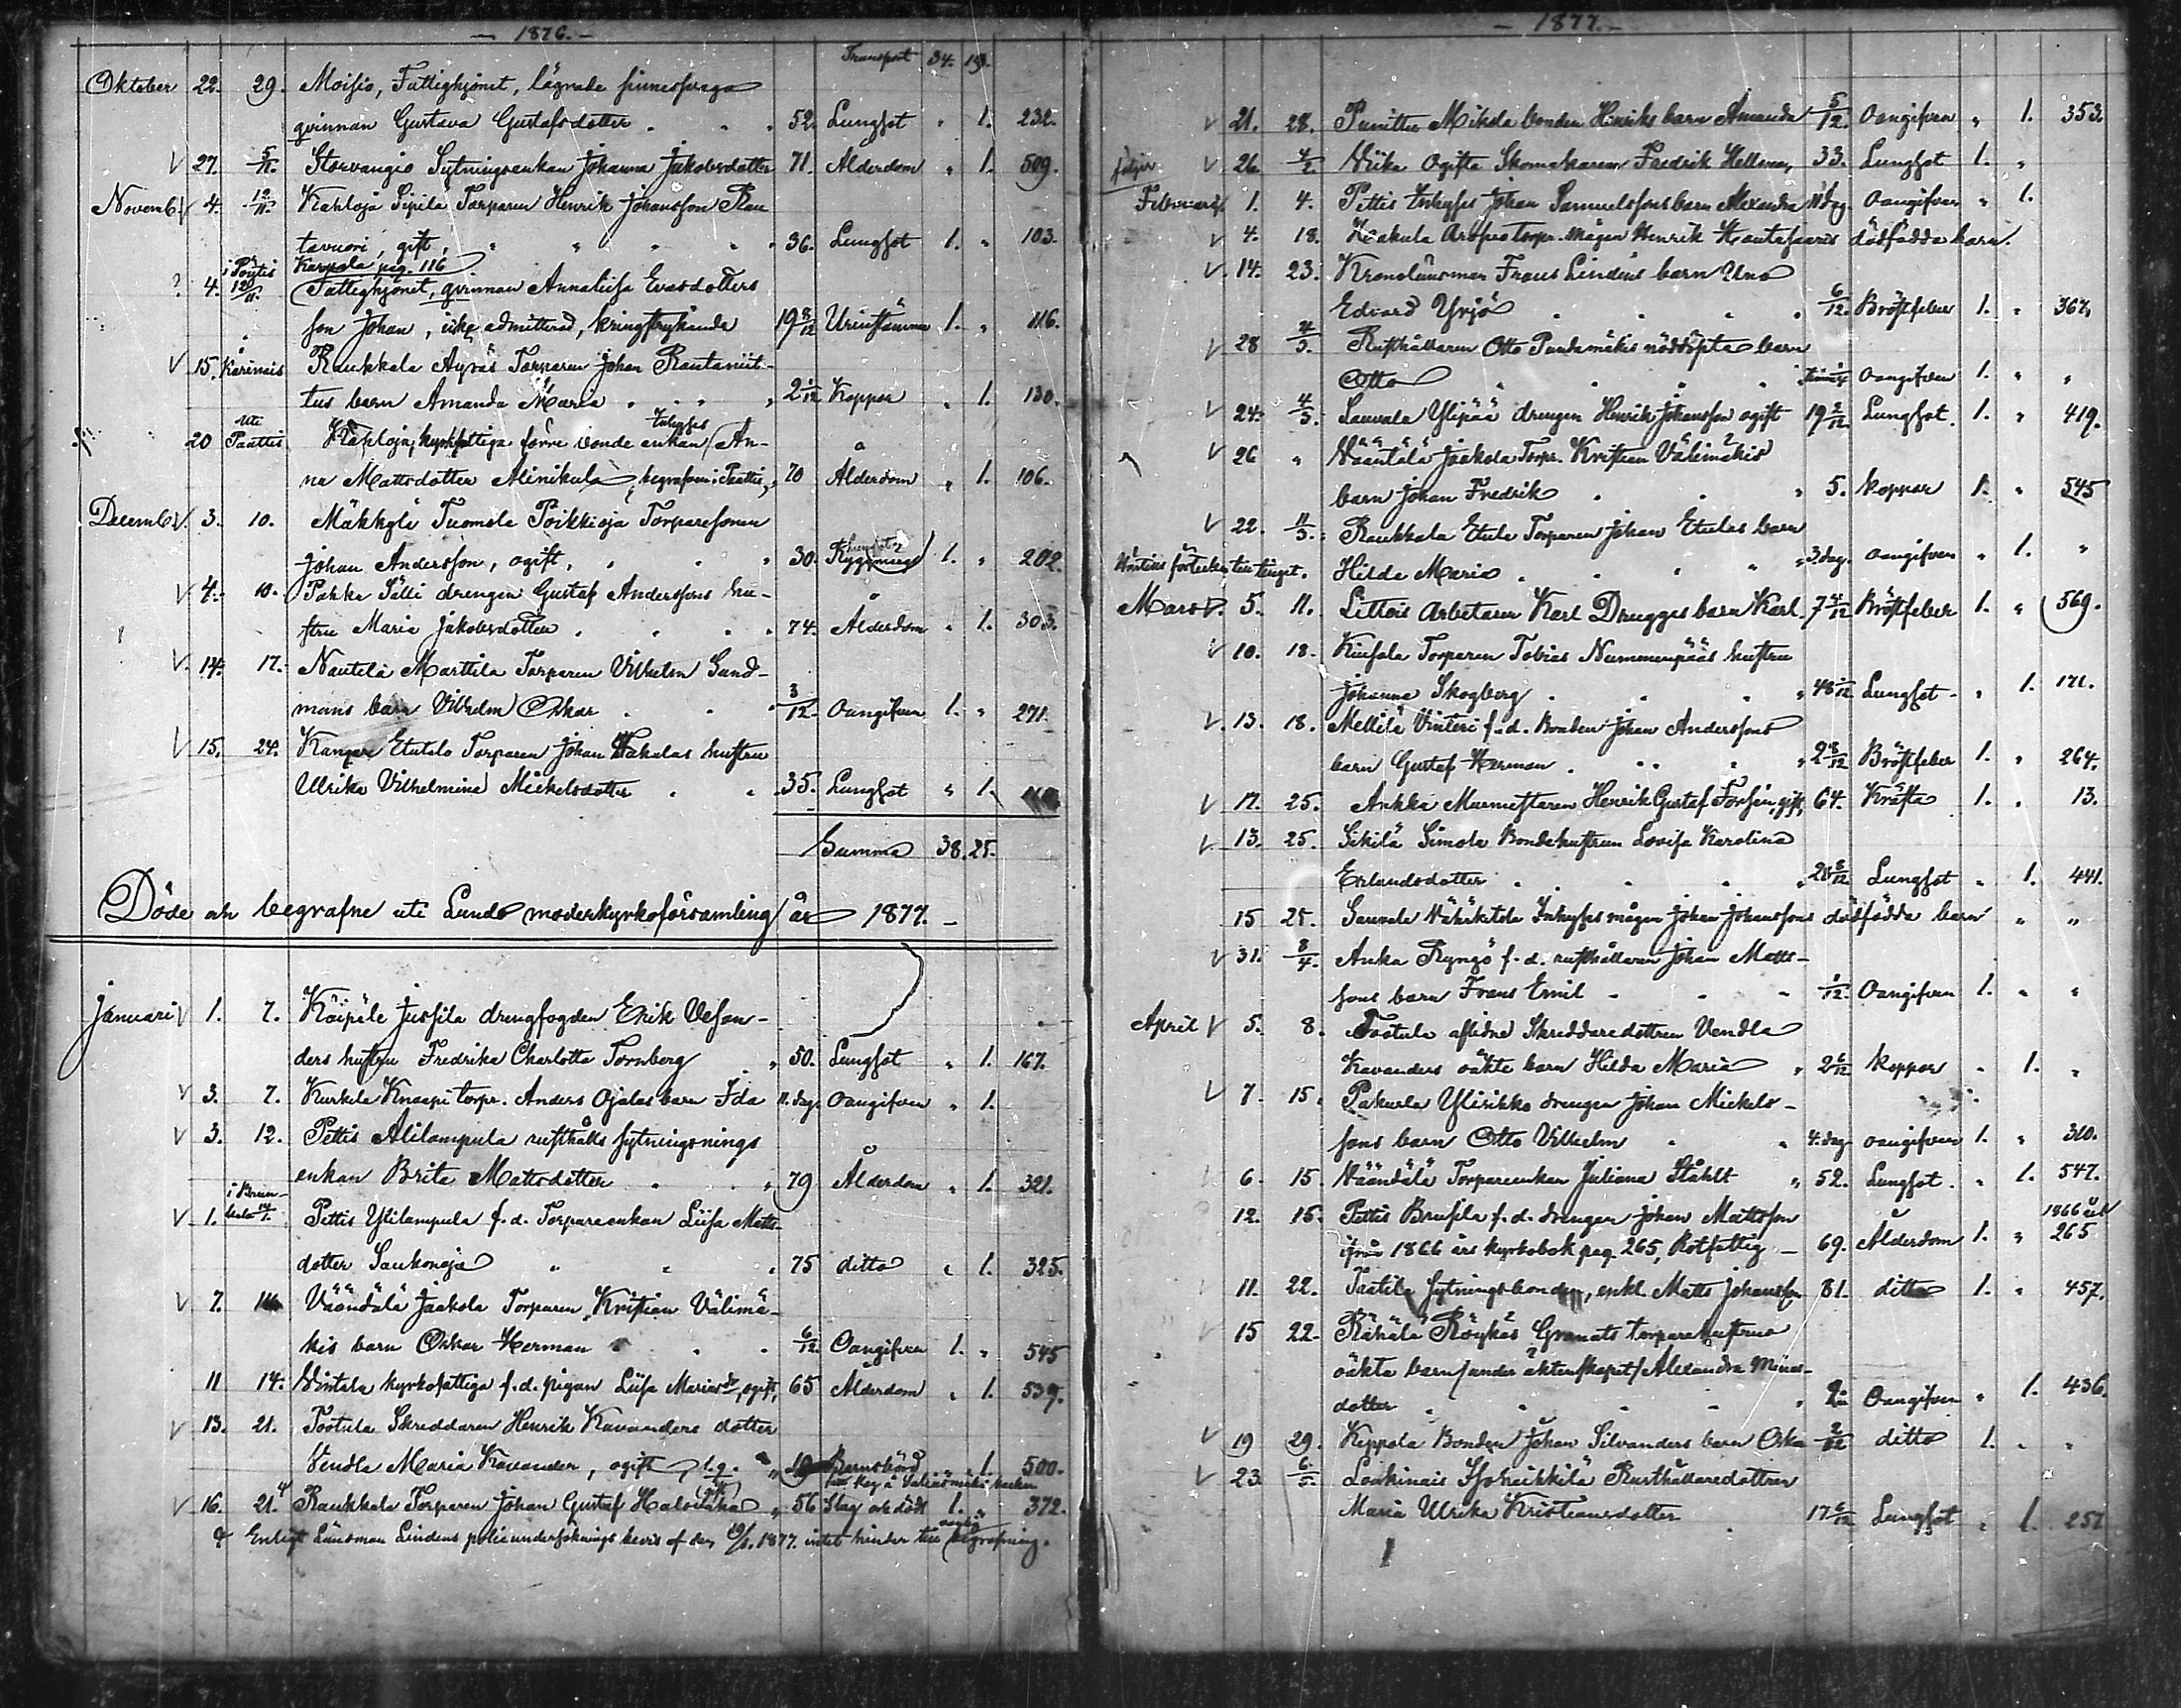 — 1876. —
Transport 34. 19.
Oktober 22. 29. Moisio, Fattighjonet, lägrade
qvinnan Gustava Gustafsdotter 52. Lungsot " 1. 232.
V 27. 5/11. Storvangio Sytningsenkan Johanna Jakobsdotter 71. Ålderdom " 1. 509.
Novemb. V 4. 12/11. Karloja Sipilä Torparen Henrik Johansson Rau
tavuori, gift, 36. Lungsot 1. " 103.
i Pöytis Karpola pag. 116
? 4. 12/11. Fattighjonet, qvinnan Annalisa Evasdotters
son Johan, icke admitterad, kringstrykande 19 8/12 Urinstämma 1. " 116.
V 15. i Karinais Raukkala Äyräs Torparen Johan Rautaniit-
tus barn Amanda Maria 2 1/12 Koppor " 1. 130.
Inhyses
20 uti Paattis Karloja, kyrkfattiga förre bonde enkan An-
na Mattsdotter Alinikula, begrafven i Paattis, 70 Ålderdom " 1. 106.
Decemb. V. 3. 10. Mäkkylä Tuomola Poikkioja Torparesonen
Johan Andersson, ogift, 30. 1. " 202.
V 4. 10. Pahka Sälli drengen Gustaf Anderssons hu-
stru Maria Jakobsdotter 74. Ålderdom " 1. 303.
V. 14. 17. Nautelä Marttila Torparen Vilhelm Sund-
mans barn Vilhelm Oskar 3/12. Oangifven 1. " 271.
V 15. 24. Kangare Etutalo Torparen Johan Hakalas hustru
Ulrika Vilhelmina Mickelsdotter 35. Lungsot " 1.
Summa 38. 25.
Döde och begrafne uti Lundo moderkyrkoförsamling år 1877. —
Januari V 1. 7. Köipäle Jussila drengfogden Erik Vesan-
ders hustru Fredrika Charlotta Tornberg " 50. Lungsot " 1. 167.
V 3. 7. Kurkela Knaapi torpr. Anders Ojalas barn Ida 11. dag. Oangifven " 1.
V 3. 12. Pettis Alilampula rusthålls sytningsnings
enkan Brita Mattsdotter " 79 Ålderdom " 1. 321.
V 1. i Brunkala 14/1. Pettis Ylilampula f.d. Torpareenkan Liisa Matts
dotter Saukonoja " 75 ditto " 1. 325.
V 7. 14. Väändälä Jaakola Torparen Kristian Välimä-
kis barn Oskar Herman 6/12. Oangifven 1. " 545
11 14. Vintala kyrkofattiga f.d. pigan Liisa Mariasdr, ogift, 65 Ålderdom " 1. 539.
V 13. 21. Tootula Skreddaren Henrik Kavanders dotter
Vendla Maria Kavander, ogift " 19 Barnsbörd " 1. 500.
V 16. 21. Raukkala Torparen Johan Gustaf " 56 Slag och dödt 1. " 372.
Enligt Länsman Lindens polisundersöknings bevis af den 19/1. 1877. intet hinder till begrafning.
— 1877. —
V 21. 28. Punittu Mikola bonden Henriks barn Amanda 5/12. Oangifven " 1. 353.
V 26. 4/2. Viika Ogifta Skomakaren Fredrik Hellman, 33. Lungsot 1. "
Februari V 1. 4. Pettis Inhyses Johan Samuelssons barn Alexandra 11 dag. Oangifven " 1.
V 4. 18. Haakula Torpr. mågen Henrik dödfödda barn.
V. 14. 23. Kronolänsman Frans Lindéns barn Uno
Edvard Yrjö 6/12. Bröstfeber 1. " 367.
V 28 4/3. Rusthållaren Otto Pundamäkis nöddöpta barn
Otto Oangifven 1. " "
V 24. 4/3. Sauvala Ylipää drengen Henrik Johansson ogift 19 2/12. Lungsot. 1. " 419.
V 26 " Väändälä Jaakola Torpr. Kristian Välimäkis
barn Johan Fredrik " 5. koppor 1. " 545
V 22. 11/3. Raukkala Etula Torparen Johan Etulas barn
Hilda Maria " 3. dag. oangifven " 1. "
Mars V. 5. 11. Littois Arbetaren Karl Druggs barn Karl. 7 4/12 Bröstfeber 1. " 569.
V 10. 18. Torparen Tobias Nummenpääs hustru
Johanna Skogberg " 48 1/12 Lungsot " 1. 171.
V. 13. 18. Mellilä Vinteri f.d. Bonden Johan Anderssons
barn Gustaf Herman " 2 8/12 Bröstfeber 1. " 264.
V 17. 25. Ankka Murmestaren Henrik Gustaf Forssén, gift, 64. Kräfta 1. " 13.
V 13. 25. Sikilä Simola Bondehustrun Lovisa Karolina
Erlandsdotter " 28 8/12 Lungsot " 1. 441.
15 25. Sauvala Inhyses mågen Johan Johanssons dödfödda barn " "
V 31. 8/4. Anka Ryngö f.d. rusthållaren Johan Matts-
sons barn Frans Emil 1/12. Oangifven 1. " "
April V 5. 8. Tootula aflidne Skreddaredottren Vendla
Kavanders oäkta barn Hilda Maria " 2 6/12 koppor " 1. "
V 7. 15. Pakurla Ylirikko drengen Johan Mickels-
sons barn Otto Vilhelm " 4. dag oangifven 1. " 310.
6. 15. Väändälä Torpareenkan Juliana Ståhlt " 52. Lungsot. " 1. 547.
1866 års
12. 15. Pettis f.d. drengen Johan Mattsson
ifrån 1866 års kyrkobok pag. 265, Rotfattig — 69. Ålderdom 1. " 265
11. 22. Taatila sytningsbonden, enkl. Matts Johansson 81. ditto 1. " 457.
15 22. Rähälä Röykäs Granats torparehustrus
oäkta barn/under äktenskapet/Alexandra
dotter " Oangifven " 1. 436.
V 19 29. Keppola Bonden Johan Silvanders barn Oska 2/12 ditto 1. " "
V 23. 6/5. Loukinais Isoheikkilä Rusthållaredottren
Maria Ulrika Kristiansdotter 17 6/12 Lungsot " 1. 257